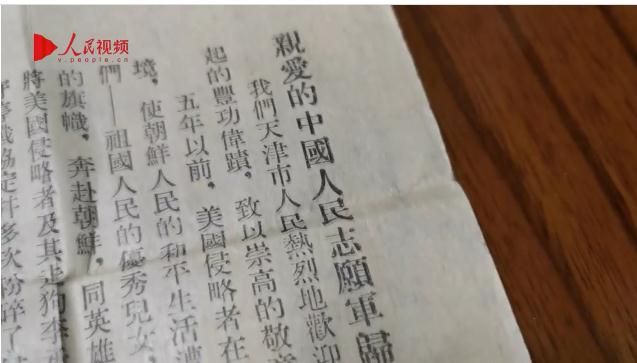 人民视频
v.people.cn
親愛的中國人民志願軍歸
我們天津市人民熱烈地歡迎
起的豐功偉蹟，致以崇高的敬意
五年以前，美國侵略者在
境，使朝鮮人民的和平生活遭
們——祖國人民的優秀兒女，
的旗幟，奔赴朝鮮，同英雄
將美國侵略者及其走狗李承
停戰協定并多次粉碎了